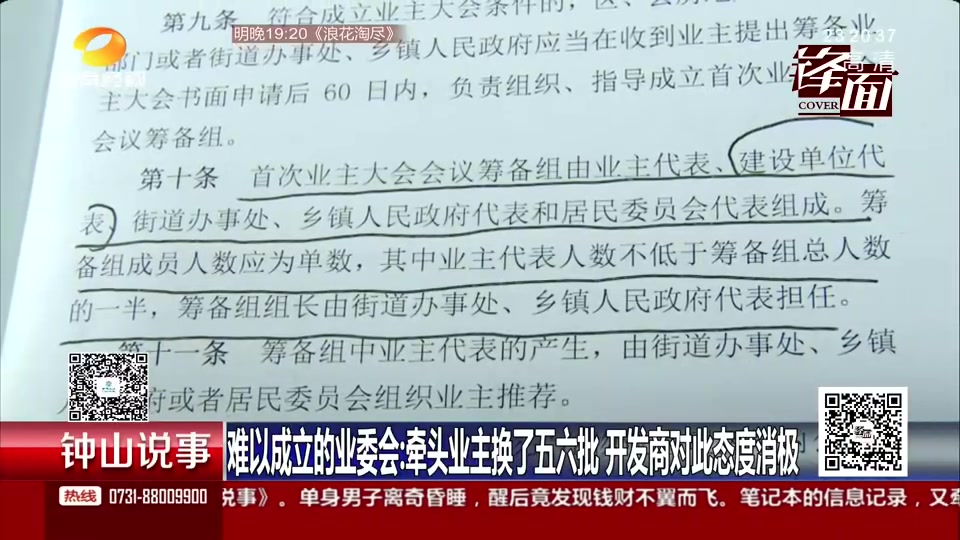 第九条 符合成立业主大会条件的,区、
明晚19:20《浪花淘尽》
高清
部门或者街道办事处、乡镇人民政府应当在收到业主提出筹备业
主大会书面申请后 60 日内,负责组织、指导成立首次业
锋面
COVER
会议筹备组。
第十条 首次业主大会会议筹备组由业主代表、建设单位代
表、街道办事处、乡镇人民政府代表和居民委员会代表组成。筹
备组成员人数应为单数,其中业主代表人数不低于筹备组总人数
的一半,筹备组组长由街道办事处、乡镇人民政府代表担任。
第十一条 筹备组中业主代表的产生,由街道办事处、乡镇
府或者居民委员会组织业主推荐。
钟山说事
难以成立的业委会:牵头业主换了五六批 开发商对此态度消极
热线 0731-88009900
说事》。单身男子离奇昏睡,醒后竟发现钱财不翼而飞。笔记本的信息记录,又牵